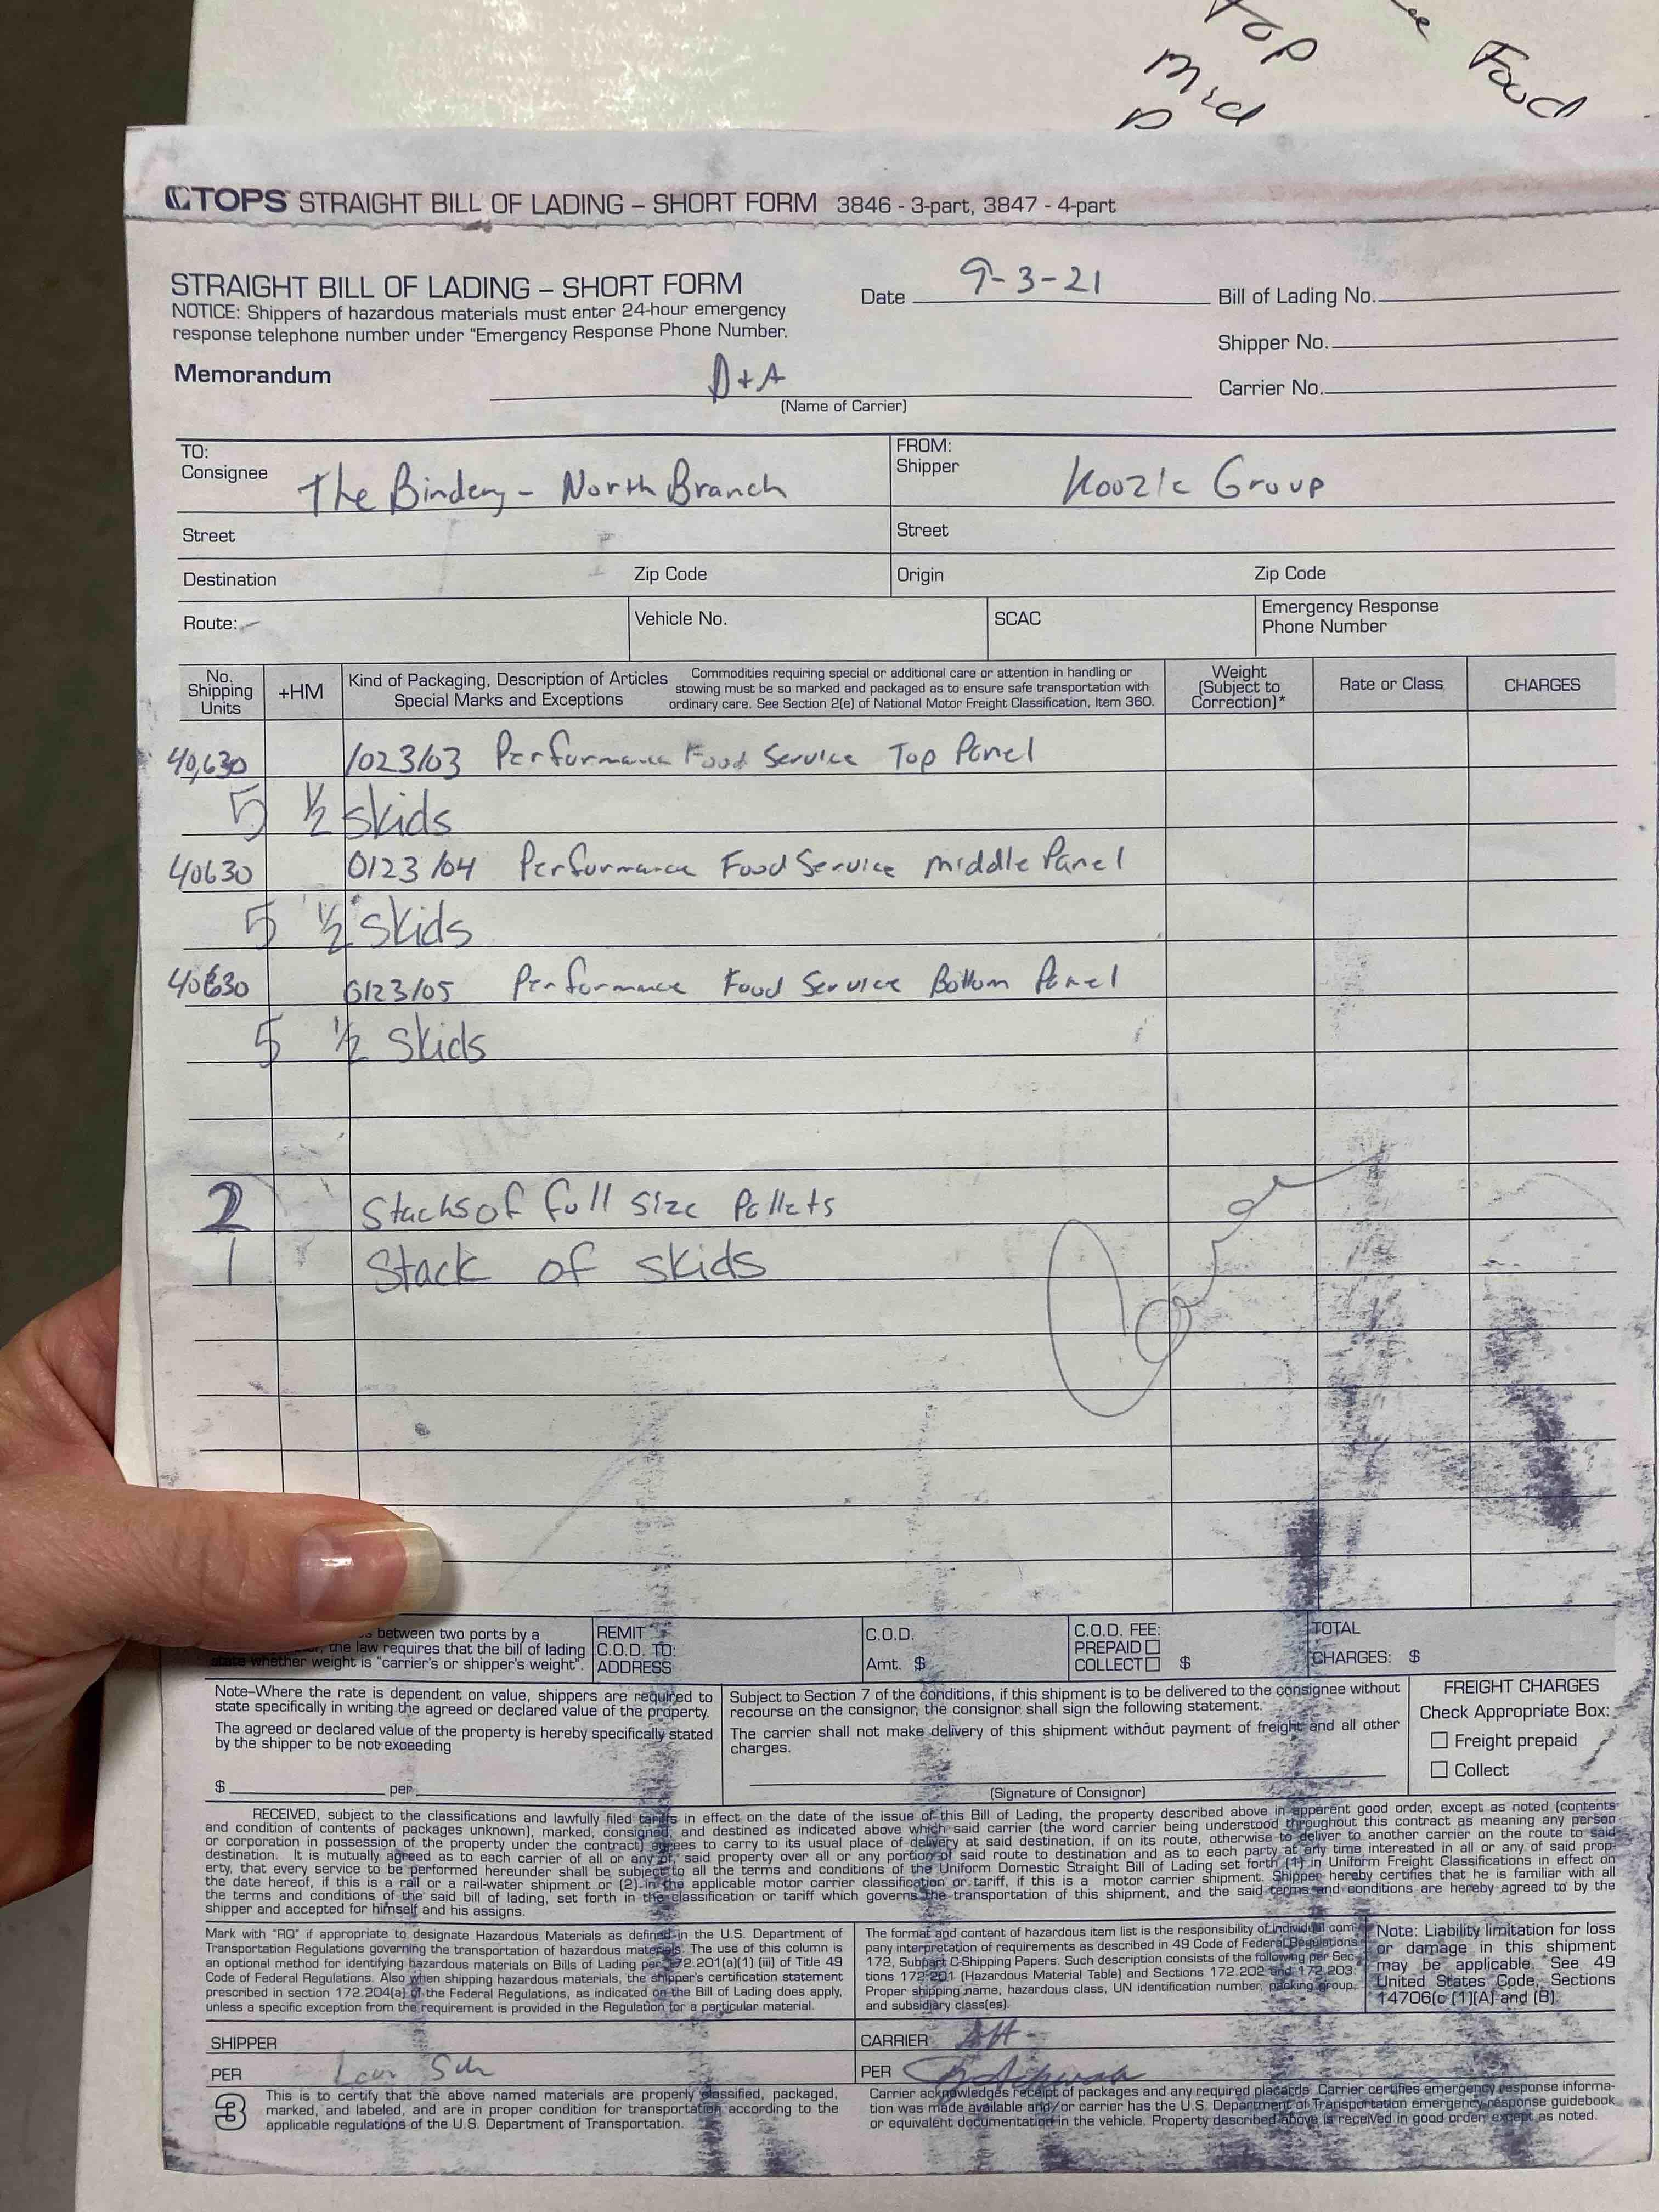 Top
Mid
Food
TOPS STRAIGHT BILL OF LADING – SHORT FORM 3846 - 3-part, 3847 - 4-part
STRAIGHT BILL OF LADING – SHORT FORM
NOTICE: Shippers of hazardous materials must enter 24-hour emergency
response telephone number under "Emergency Response Phone Number.
Date 9-3-21
Bill of Lading No.
Shipper No.
Carrier No.
Memorandum
D+A
(Name of Carrier)
TO:
Consignee The Bindery - North Branch
FROM:
Shipper Koozie Group
Street
Street
Destination Zip Code
Origin Zip Code
Route:
Vehicle No.
SCAC
Emergency Response
Phone Number
No.
Shipping
Units
+HM
Kind of Packaging, Description of Articles
Special Marks and Exceptions
Commodities requiring special or additional care or attention in handling or
stowing must be so marked and packaged as to ensure safe transportation with
ordinary care. See Section 2(e) of National Motor Freight Classification, Item 360.
Weight
(Subject to
Correction)*
Rate or Class
CHARGES
40,630 1023/03 Performance Food Service Top Panel
5 1/2 skids
40630 0123/04 Performance Food Service middle Panel
5 1/2 skids
40630 0123/05 Performance Food Service Bottom Panel
5 1/2 skids
2 Stacks of full size Pallets
1 Stack of skids
between two ports by a
the law requires that the bill of lading
state whether weight is "carrier's or shipper's weight".
REMIT
C.O.D. TO:
ADDRESS
C.O.D.
Amt. $
C.O.D. FEE:
PREPAID
COLLECT $
TOTAL
CHARGES: $
Note–Where the rate is dependent on value, shippers are required to
state specifically in writing the agreed or declared value of the property.
The agreed or declared value of the property is hereby specifically stated
by the shipper to be not exceeding
$ per
Subject to Section 7 of the conditions, if this shipment is to be delivered to the consignee without
recourse on the consignor, the consignor shall sign the following statement.
The carrier shall not make delivery of this shipment without payment of freight and all other
charges.
(Signature of Consignor)
FREIGHT CHARGES
Check Appropriate Box:
Freight prepaid
Collect
RECEIVED, subject to the classifications and lawfully filed tariffs in effect on the date of the issue of this Bill of Lading, the property described above in apparent good order, except as noted (contents
and condition of contents of packages unknown), marked, consigned, and destined as indicated above which said carrier (the word carrier being understood throughout this contract as meaning any person
or corporation in possession of the property under the contract) agrees to carry to its usual place of delivery at said destination, if on its route, otherwise to deliver to another carrier on the route to said
destination. It is mutually agreed as to each carrier of all or any of, said property over all or any portion of said route to destination and as to each party at any time interested in all or any of said prop-
erty, that every service to be performed hereunder shall be subject to all the terms and conditions of the Uniform Domestic Straight Bill of Lading set forth (1) in Uniform Freight Classifications in effect on
the date hereof, if this is a rail or a rail-water shipment or (2) in the applicable motor carrier classification or tariff, if this is a motor carrier shipment. Shipper hereby certifies that he is familiar with all
the terms and conditions of the said bill of lading, set forth in the classification or tariff which governs the transportation of this shipment, and the said terms and conditions are hereby agreed to by the
shipper and accepted for himself and his assigns.
Mark with "RQ" if appropriate to designate Hazardous Materials as defined in the U.S. Department of
Transportation Regulations governing the transportation of hazardous materials. The use of this column is
an optional method for identifying hazardous materials on Bills of Lading per 172.201(a)(1) (iii) of Title 49
Code of Federal Regulations. Also when shipping hazardous materials, the shipper's certification statement
prescribed in section 172.204(a) of the Federal Regulations, as indicated on the Bill of Lading does apply,
unless a specific exception from the requirement is provided in the Regulation for a particular material.
The format and content of hazardous item list is the responsibility of individual com-
pany interpretation of requirements as described in 49 Code of Federal Regulations
172, Subpart C-Shipping Papers. Such description consists of the following per Sec-
tions 172.201 (Hazardous Material Table) and Sections 172.202 and 172.203:
Proper shipping name, hazardous class, UN identification number, packing group,
and subsidiary class(es).
Note: Liability limitation for loss
or damage in this shipment
may be applicable. See 49
United States Code, Sections
14706(c (1)(A) and (B).
SHIPPER
CARRIER
PER
PER
3
This is to certify that the above named materials are properly classified, packaged,
marked, and labeled, and are in proper condition for transportation according to the
applicable regulations of the U.S. Department of Transportation.
Carrier acknowledges receipt of packages and any required placards. Carrier certifies emergency response informa-
tion was made available and/or carrier has the U.S. Department of Transportation emergency response guidebook
or equivalent documentation in the vehicle. Property described above is received in good order, except as noted.